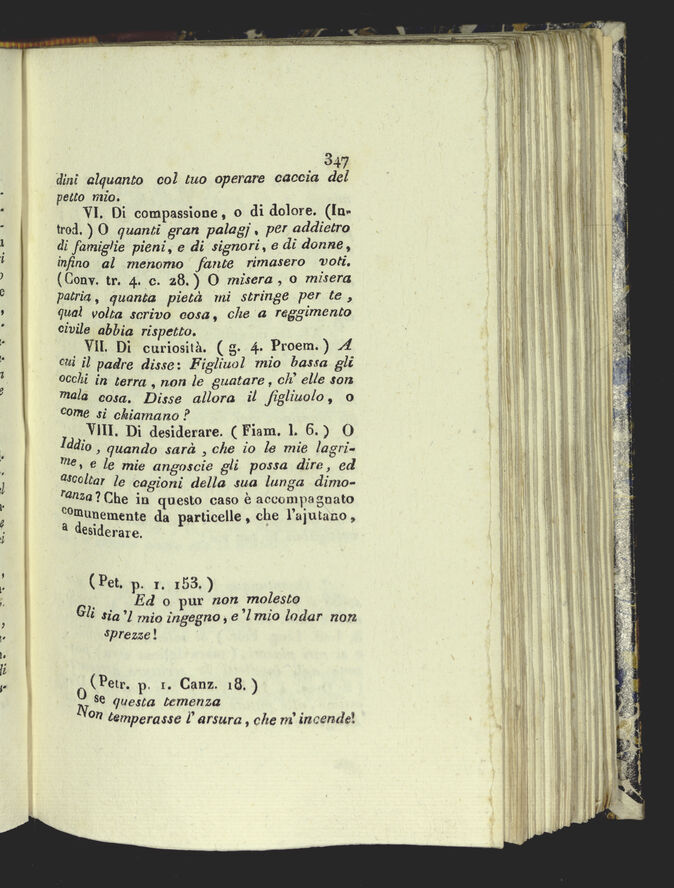 347
dini alquanto col tuo operare caccia del
petto mio.
VI. Di compassione, o di dolore. (In-
trod.) O quanti gran palagj, per addietro
di famiglie pieni, e di signori, e di donne,
infino al menomo fante rimasero voti.
(Conv. tr. 4. c. 28.) O misera, o misera
patria, quanta pietà mi stringe per te,
qual volta scrivo cosa, che a reggimento
civile abbia rispetto.
VII. Di curiosità. (g. 4. Proem.) A
cui il padre disse: Figliuol mio bassa gli
occhi in terra, non le guatare, ch' elle son
mala cosa. Disse allora il figliuolo, o
come si chiamano?
VIII. Di desiderare. (Fiam. l. 6.) O
Iddio, quando sarà, che io le mie lagri-
me, e le mie angoscie gli possa dire, ed
ascoltar le cagioni della sua lunga dimo-
ranza? Che in questo caso è accompagnato
comunemente da particelle, che l'ajutano,
a desiderare.
(Pet. p. 1. 153.)
Ed o pur non molesto
Gli sia 'l mio ingegno, e 'l mio lodar non
sprezze!
(Petr. p. 1. Canz. 18.)
O se questa temenza
Non temperasse l' arsura, che m' incende!